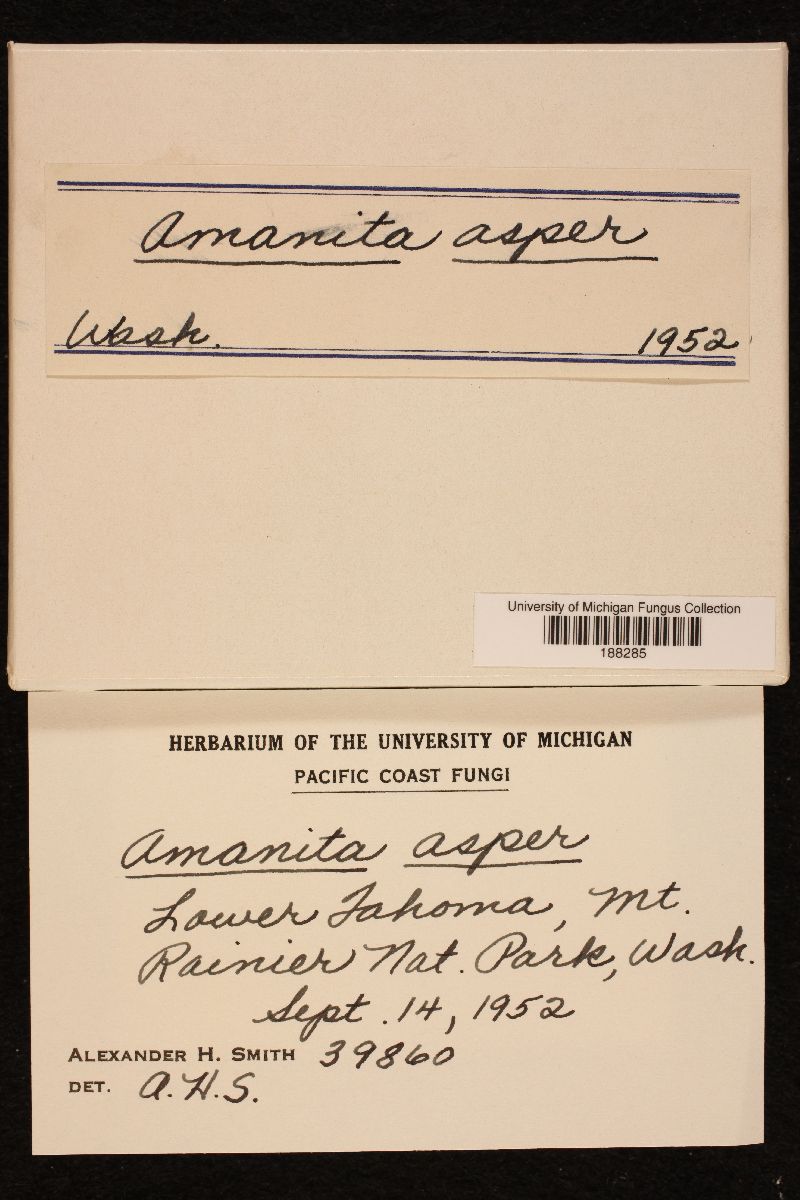 Amanita asper
Wash. 1952
University of Michigan Fungus Collection
188285
HERBARIUM OF THE UNIVERSITY OF MICHIGAN
PACIFIC COAST FUNGI
Amanita asper
Lower Tahoma, Mt.
Rainier Nat. Park, Wash.
Sept. 14, 1952
ALEXANDER H. SMITH 39860
DET. A.H.S.